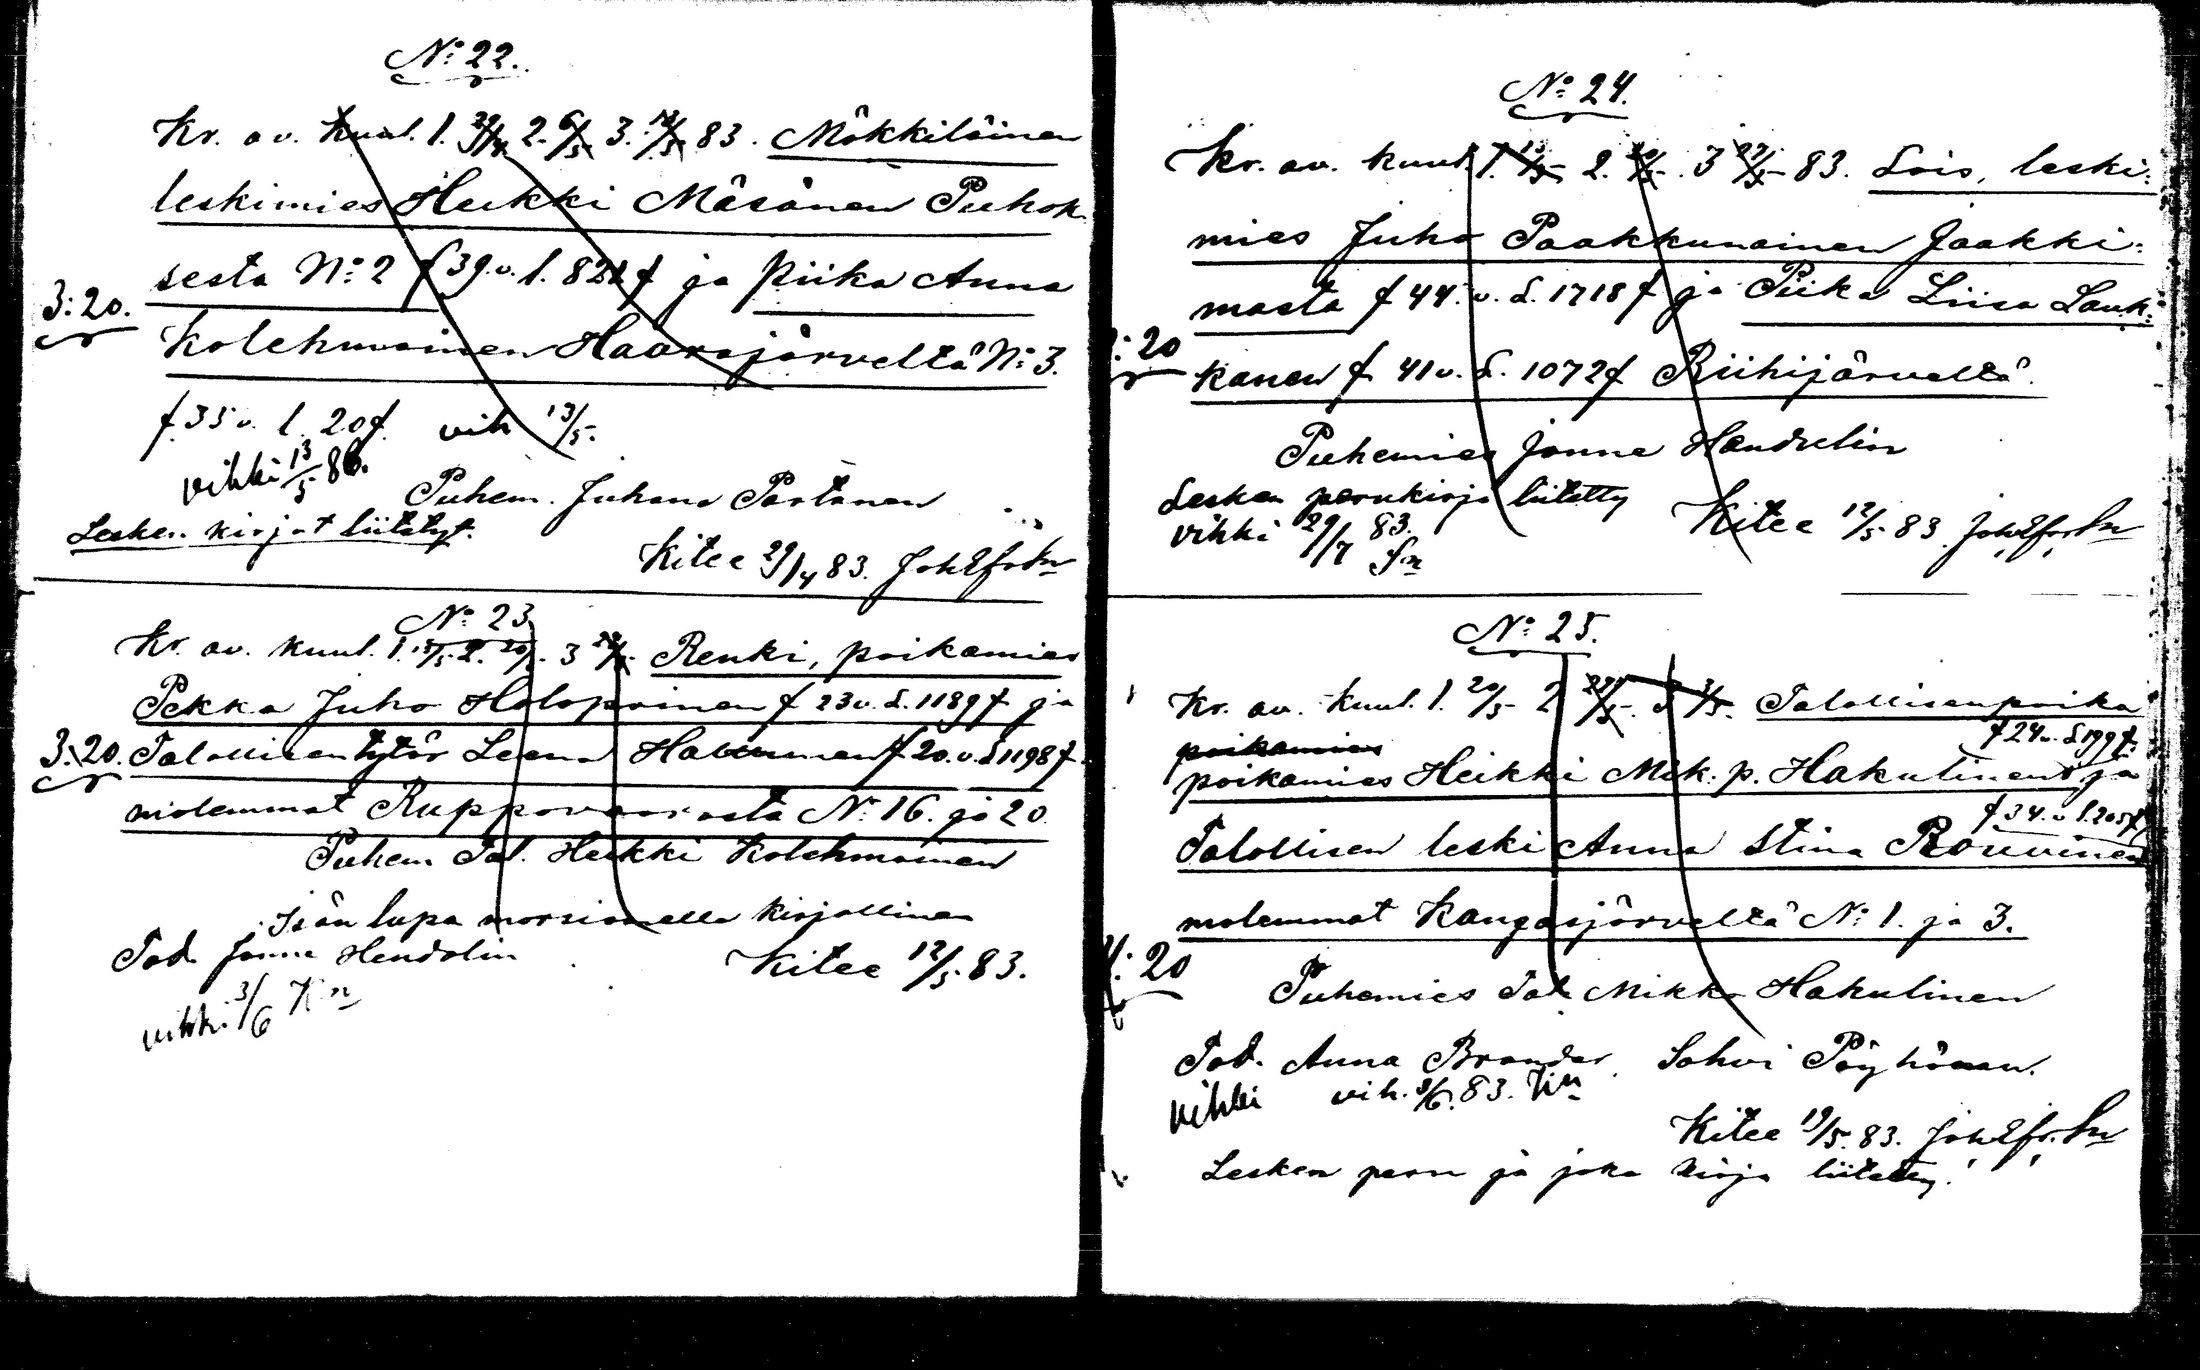 No: 22.
Kr. av. kuul. 1. 29/4 2. 6/5 3. 13/5 83. Mökkiläinen
leskimies Heikki Mäsönen Puhok
sesta No: 2 f 39. v. l. 821 f ja piika Anna
3: 20.
Kolehmainen Haarajärveltä No: 3.
f. 35 v. l. 20 f. vih 13/5.
vihki 13/5 86.
Puhem. Juhana Partanen
Lesken kirjat liitetyt.
Kitee 29/4 83.
No: 23
Kr. av. kuul. 1. 13/5 2. 20/5. 3 27/5 Renki, poikamies
Pekka Juho Holopainen f 23 v. S. 1189 f ja
3: 20. Talollisen tytär Leena f 20. v. S 1198 f
molemmat Ruppovaarasta No: 16. ja 20.
Puhem Tal. Heikki Kolehmainen
Isän lupa morsiamella kirjallinen
Tod. Jonne Hendolin
Kitee 12/5 83.
vihki 3/6
No: 24.
Kr. av. kuul. 1. 13/5 2. 20/5. 3 27/5 83. Lois, leski:
mies Juho Paakkunainen Jaakki:
masta f 44. v. S. 1718 f ja Piika Liisa Lauk:
: 20
kanen f 41 v. S. 1072 f Riihijärveltä.
Puhemies Jonne Handolin
Lesken perukirja liitetty
Kitee 12/5 83.
vihki 29/7 83.
No: 25.
Kr. av. kuul. 1. 20/5 2 27/5. 3 3/5. Talollisenpoika
f 24 v. S 199 f.
poikamies
poikamies Heikki Mik. p. Hakulinen ja
f 34. v l. 205 f
Talollisen leski Anna Stina Rouvinen
molemmat Kangasjärveltä No: 1. ja 3.
: 20
Puhemies Tal. Mikko Hakulinen
Tod. Anna Brander. Sohvi Pöyhönen.
vihki vih. 3/6. 83.
Kitee 19/5. 83.
Lesken peru ja jako kirja liitetty.